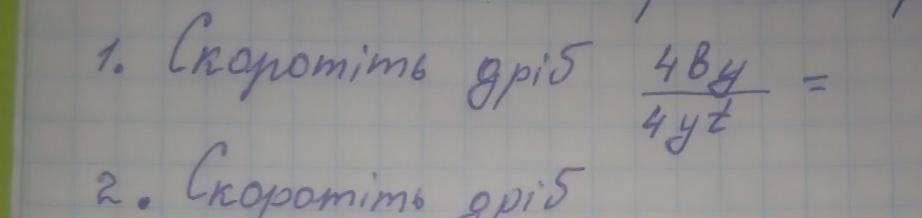 1. Скоротіть дріб 4ву/4уt =
2. Скоротіть дріб